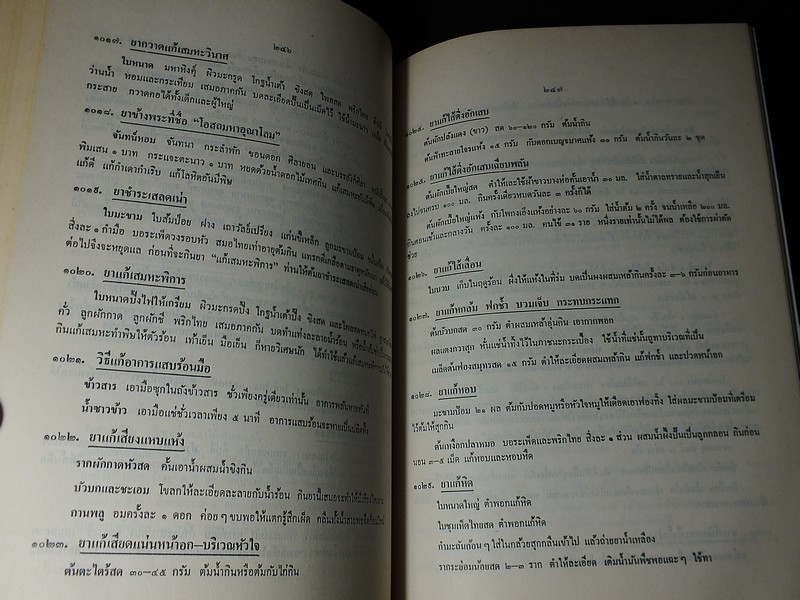 ๒๔๖
๑๐๑๗. ยากวาดแก้เสมหะวินาศ
ใบหนาด มหาหิงคุ์ ผิวมะกรูด โกฐน้ำเต้า ขิงสด ไพลสด พริกไทย
ว่านน้ำ หอมและกระเทียม เสมอภาคกัน บดละเอียดปั้นเป็นเม็ดไว้ ใช้น้ำมะนาว
กระสาย กวาดคอได้ทั้งเด็กและผู้ใหญ่
๑๐๑๘. ยาข้างพระที่ชื่อ "โอสถมหาอุณาโลม"
จันทน์หอม จันทนา กระลำพัก ขอนดอก ศิลายอน และบรรลังก์ศิลา
พิมเสน ๑ บาท กระแจะตะนาว ๑ บาท หยดด้วยน้ำดอกไม้เทศกิน แก้เสมหะพิการ
แก้ดี แก้กำเดากำเริบ แก้โลหิตอันมีพิษ
๑๐๑๙. ยาชำระเสลดเน่า
ใบมะขาม ใบส้มป่อย ฝาง เถาวัลย์เปรียง แก่นขี้เหล็ก ลูกมะขามป้อม
สิ่งละ ๑ กำมือ บอระเพ็ดวงรอบหัว สมอไทยเท่าอายุต้มกิน แทรกดีเกลือตามธาตุ
ต่อไปจึงจะหยุดแล ก่อนที่จะกินยา "แก้เสมหะพิการ" ท่านให้ต้มยาชำระเสลดเน่า
๑๐๒๐. ยาแก้เสมหะพิการ
ใบหนาดปิ้งไฟให้เกรียม ผิวมะกรูดปิ้ง โกฐน้ำเต้าปิ้ง ขิงสด และไพลสด
คั่ว ลูกผักกาด ลูกผักชี พริกไทย เสมอภาคกัน บดทำแท่งละลายน้ำร้อน
กินแก้เสมหะทำพิษให้ตัวร้อน เท้าเย็น มือเย็น ก็หายวิเศษนัก ได้ทำใช้แล้ว
๑๐๒๑. วิธีแก้อาการแสบร้อนมือ
ข้าวสาร เอามือซุกในถังข้าวสาร ชั่วเพียงครู่เดียวเท่านั้น อาการพลันหายทันที
น้ำซาวข้าว เอามือแช่ชั่วเวลาเพียง ๕ นาที อาการแสบร้อนจะหายเป็นปลิดทิ้ง
๑๐๒๒. ยาแก้เสียงแหบแห้ง
รากผักกาดหัวสด คั้นเอาน้ำผสมน้ำขิงกิน
บัวบกและชะเอม โขลกให้ละเอียดละลายกับน้ำร้อน กินยานี้เสมอจะทำให้
กานพลู อมครั้งละ ๑ ดอก ค่อยๆ ขบพอให้แตกรู้สึกเผ็ด กลืนทั้งน้ำ
๑๐๒๓. ยาแก้เสียดแน่นหน้าอก–บริเวณหัวใจ
ต้นตะไคร้สด ๓๐–๔๕ กรัม ต้มน้ำกินหรือต้มกับไก่กิน
๒๔๗
๑๐๒๔. ยาแก้ไส้ติ่งอักเสบ
ต้นผักปลังแดง (ขาว) สด ๖๐–๑๒๐ กรัม ต้มน้ำกิน
ต้นฟ้าทะลายโจรแห้ง ๑๕ กรัม กับดอกเบญจมาศแห้ง ๓๐ กรัม ต้มน้ำกินวันละ ๒ ชุด
๑๐๒๕. ยาแก้ไส้ติ่งอักเสบเฉียบพลัน
ต้นผักเบี้ยใหญ่สด ตำให้และใช้ผ้าขาวบางห่อคั้นเอาน้ำ ๓๐ มล. ใส่น้ำตาลทรายและน้ำสุกเย็น
ลงไปจนครบ ๑๐๐ มล. กินครั้งเดียวหมดวันละ ๓ ครั้งก็ได้
ต้นผักเบี้ยใหญ่แห้ง กับโพกงเอ็งแห้งอย่างละ ๖๐ กรัม ใส่น้ำต้ม ๒ ครั้ง จนน้ำเหลือ ๒๐๐ มล.
กินตอนเช้าและกลางวัน ครั้งละ ๑๐๐ มล. คนไข้ ๓๑ ราย หนึ่งรายเท่านั้นไม่ได้ผล ต้องใช้การผ่าตัด
ช่วย
๑๐๒๖. ยาแก้ไส้เลื่อน
ใบบวบ เก็บในฤดูร้อน ผึ่งให้แห้งในที่ร่ม บดเป็นผงผสมเหล้ากินครั้งละ ๓–๖ กรัมก่อนอาหาร
๑๐๒๗. ยาแก้หกล้ม ฟกช้ำ บวมเจ็บ กระทบกระแทก
ต้นบัวบกสด ๓๐ กรัม ตำผสมเหล้าอุ่นกิน เอากากพอก
ผลแตงกวาสุก หั่นแช่น้ำทิ้งไว้ในภาชนะกระเบื้อง ใช้น้ำที่แช่นั้นถูทาบริเวณที่เป็น
เมล็ดต้นฟองสมุทรสด ๑๕ กรัม ตำให้ละเอียดผสมเหล้ากิน แก้ฟกช้ำ และปวดหน้าอก
๑๐๒๘. ยาแก้หอบ
มะขามป้อม ๒๑ ผล ต้มกับปอดหมูหรือหัวใจหมูให้เดือดเอาฟองทิ้ง ใส่ผลมะขามป้อมที่เตรียม
ไว้ต้มให้สุกกิน
ต้นเหงือกปลาหมอ บอระเพ็ดและพริกไทย สิ่งละ ๑ ส่วน ผสมน้ำผึ้งปั้นเป็นลูกกลอน กินก่อน
นอน ๓–๕ เม็ด แก้หอบและหอบหืด
๑๐๒๙. ยาแก้หิด
ใบหนาดใหญ่ ตำพอกแก้หิด
ใบชุมเห็ดไทยสด ตำพอกแก้หิด
กำมะถันก้อนๆ ใส่ในกล้วยสุกกลืนเข้าไป แล้วถ่ายยาน้ำเหลือง
รากระย่อมน้อยสด ๒–๓ ราก ตำให้ละเอียด เติมน้ำมันพืชพอแฉะๆ ใช้ทา